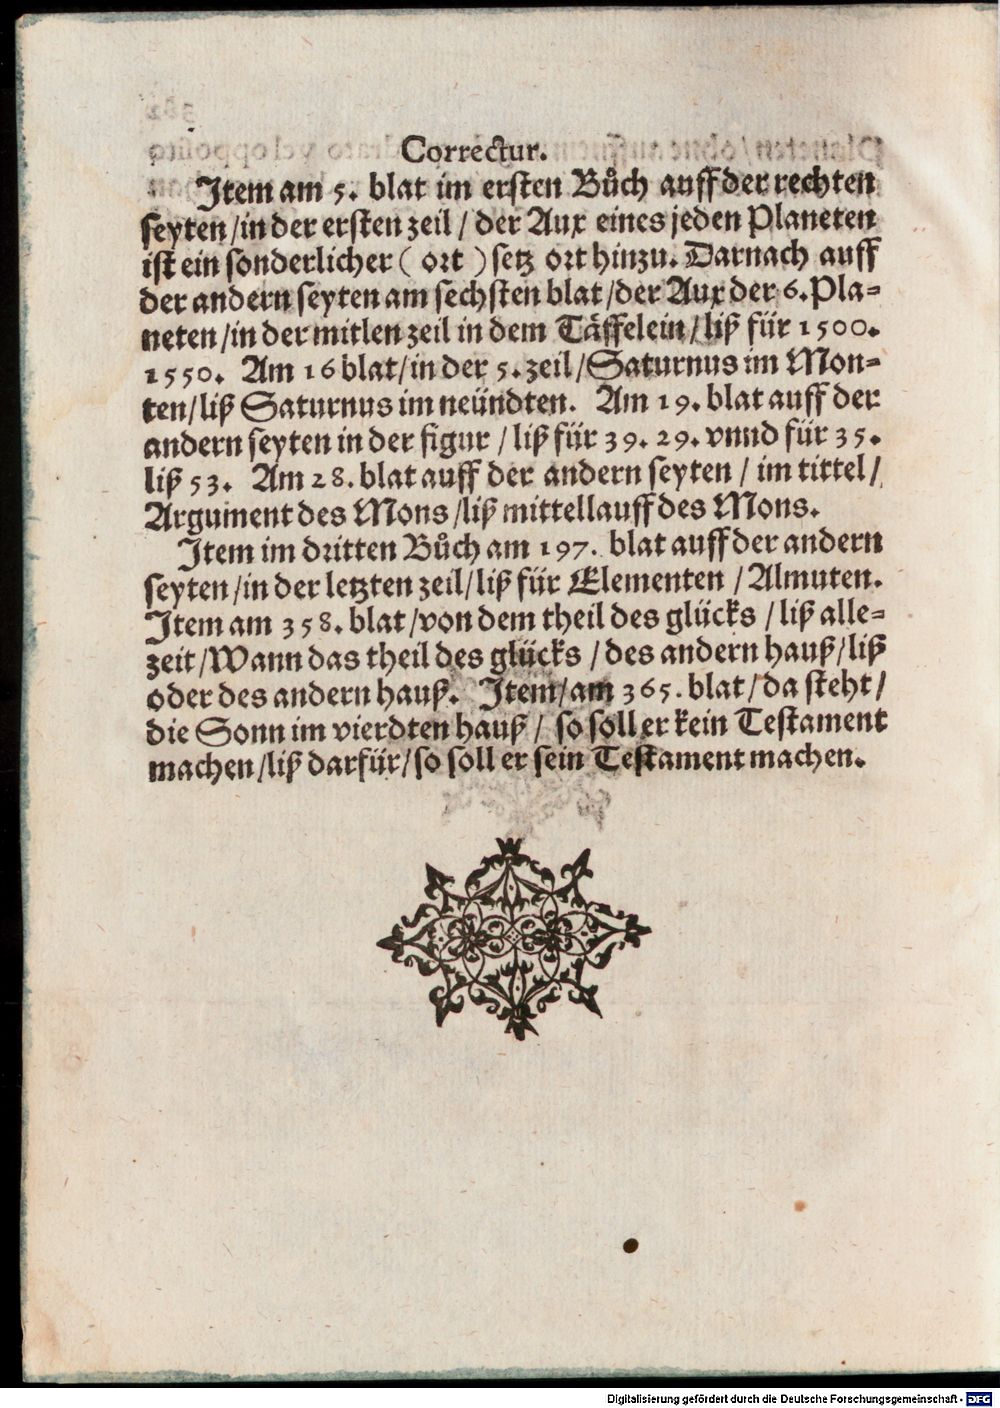 Correctur.
Item am 5. blat im ersten Bůch auff der rechten
seyten / in der ersten zeil / der Aux eines jeden Planeten
ist ein sonderlicher ( ort ) setz ort hinzu. Darnach auff
der andern seyten am sechsten blat / der Aux der 6. Pla=
neten / in der mitlen zeil in dem Täffelein / liß für 1500.
1550. Am 16 blat / in der 5. zeil / Saturnus im Mon=
ten / liß Saturnus im neündten. Am 19. blat auff der
andern seyten in der figur / liß für 39. 29. vnnd für 35.
liß 53. Am 28. blat auff der andern seyten / im tittel /
Argument des Mons / liß mittellauff des Mons.
Item im dritten Bůch am 197. blat auff der andern
seyten / in der letzten zeil / liß für Elementen / Almuten.
Item am 358. blat / von dem theil des glücks / liß alle=
zeit / Wann das theil des glücks / des andern hauß / liß
oder des andern hauß. Item / am 365. blat / da steht /
die Sonn im vierdten hauß / so soll er kein Testament
machen / liß darfür / so soll er sein Testament machen.
Digitalisierung gefördert durch die Deutsche Forschungsgemeinschaft - DFG